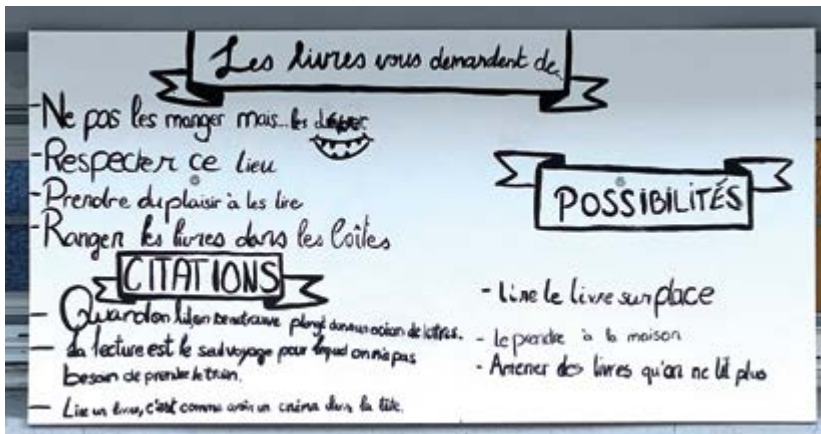 Les livres vous demandent de...
- Ne pas les manger mais... les dévorer
- Respecter ce lieu
- Prendre du plaisir à les lire
- Ranger les livres dans les boîtes
CITATIONS
- Quand on lit, on se retrouve plongé dans un océan de lettres.
- La lecture est le seul voyage pour lequel on n'a pas
besoin de prendre le train.
- Lire un livre, c'est comme avoir un cinéma dans la tête.
POSSIBILITÉS
- Lire le livre sur place
- Le prendre à la maison
- Amener des livres qu'on ne lit plus